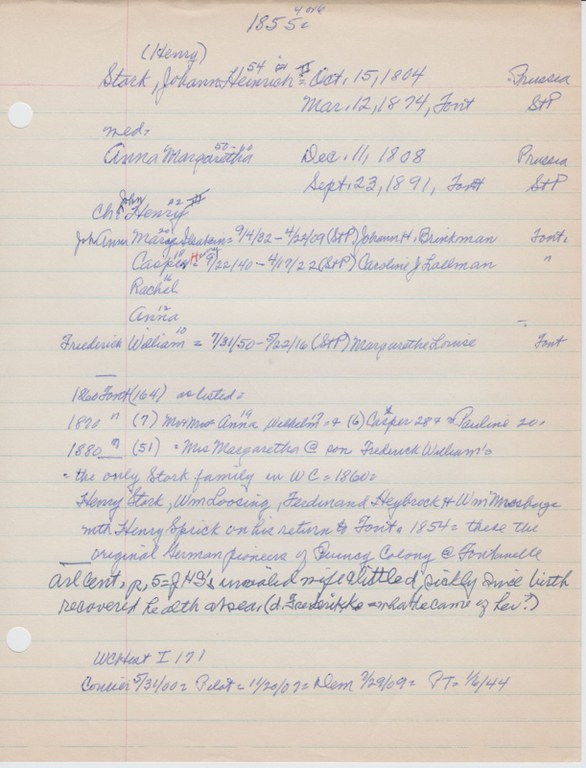 1855= 4 or 6
(Henry)
Stork, Johann Heinrich 54 II = Oct. 15, 1804 Prussia
Mar. 12, 1874, Font StP
med.
Anna Margaretha 50 Dec. 11, 1808 Prussia
Sept. 23, 1891, Font StP
Ch: John Henry 22 III
Anna = 9/4/32 - 4/29/09 (StP) Johann H. Brinkman Font.
Casper = 9/22/40 - 4/17/22 (StP) Caroline J Lallman "
Rachel 16
Anna 12
Frederick William 10 = 7/31/50 - 5/22/16 (StP) Margarethe Louise Font
1860 Font (164) as listed.
1870 " (7) Mr & Mrs Anna 19 Wilhelm & (6) Casper 28 & Pauline 20.
1880 " (51) Mrs Margaretha @ son Frederick William's
the only Stork family in WC = 1860=
Henry Stork, Wm Loosing, Ferdinand Heybrock & Wm
with Henry Sprick on his return to Font. 1854= these the
original German pioneers of Quincy Colony @ Fontanelle
p. 5= invalid wife & little d, sickly since birth
recovered health at sea. (d. Fredericke = what became of her?)
WCHist I 171
Courier 5/31/00= Pilot= 11/20/07= Dem 7/29/09= PT= 1/6/44